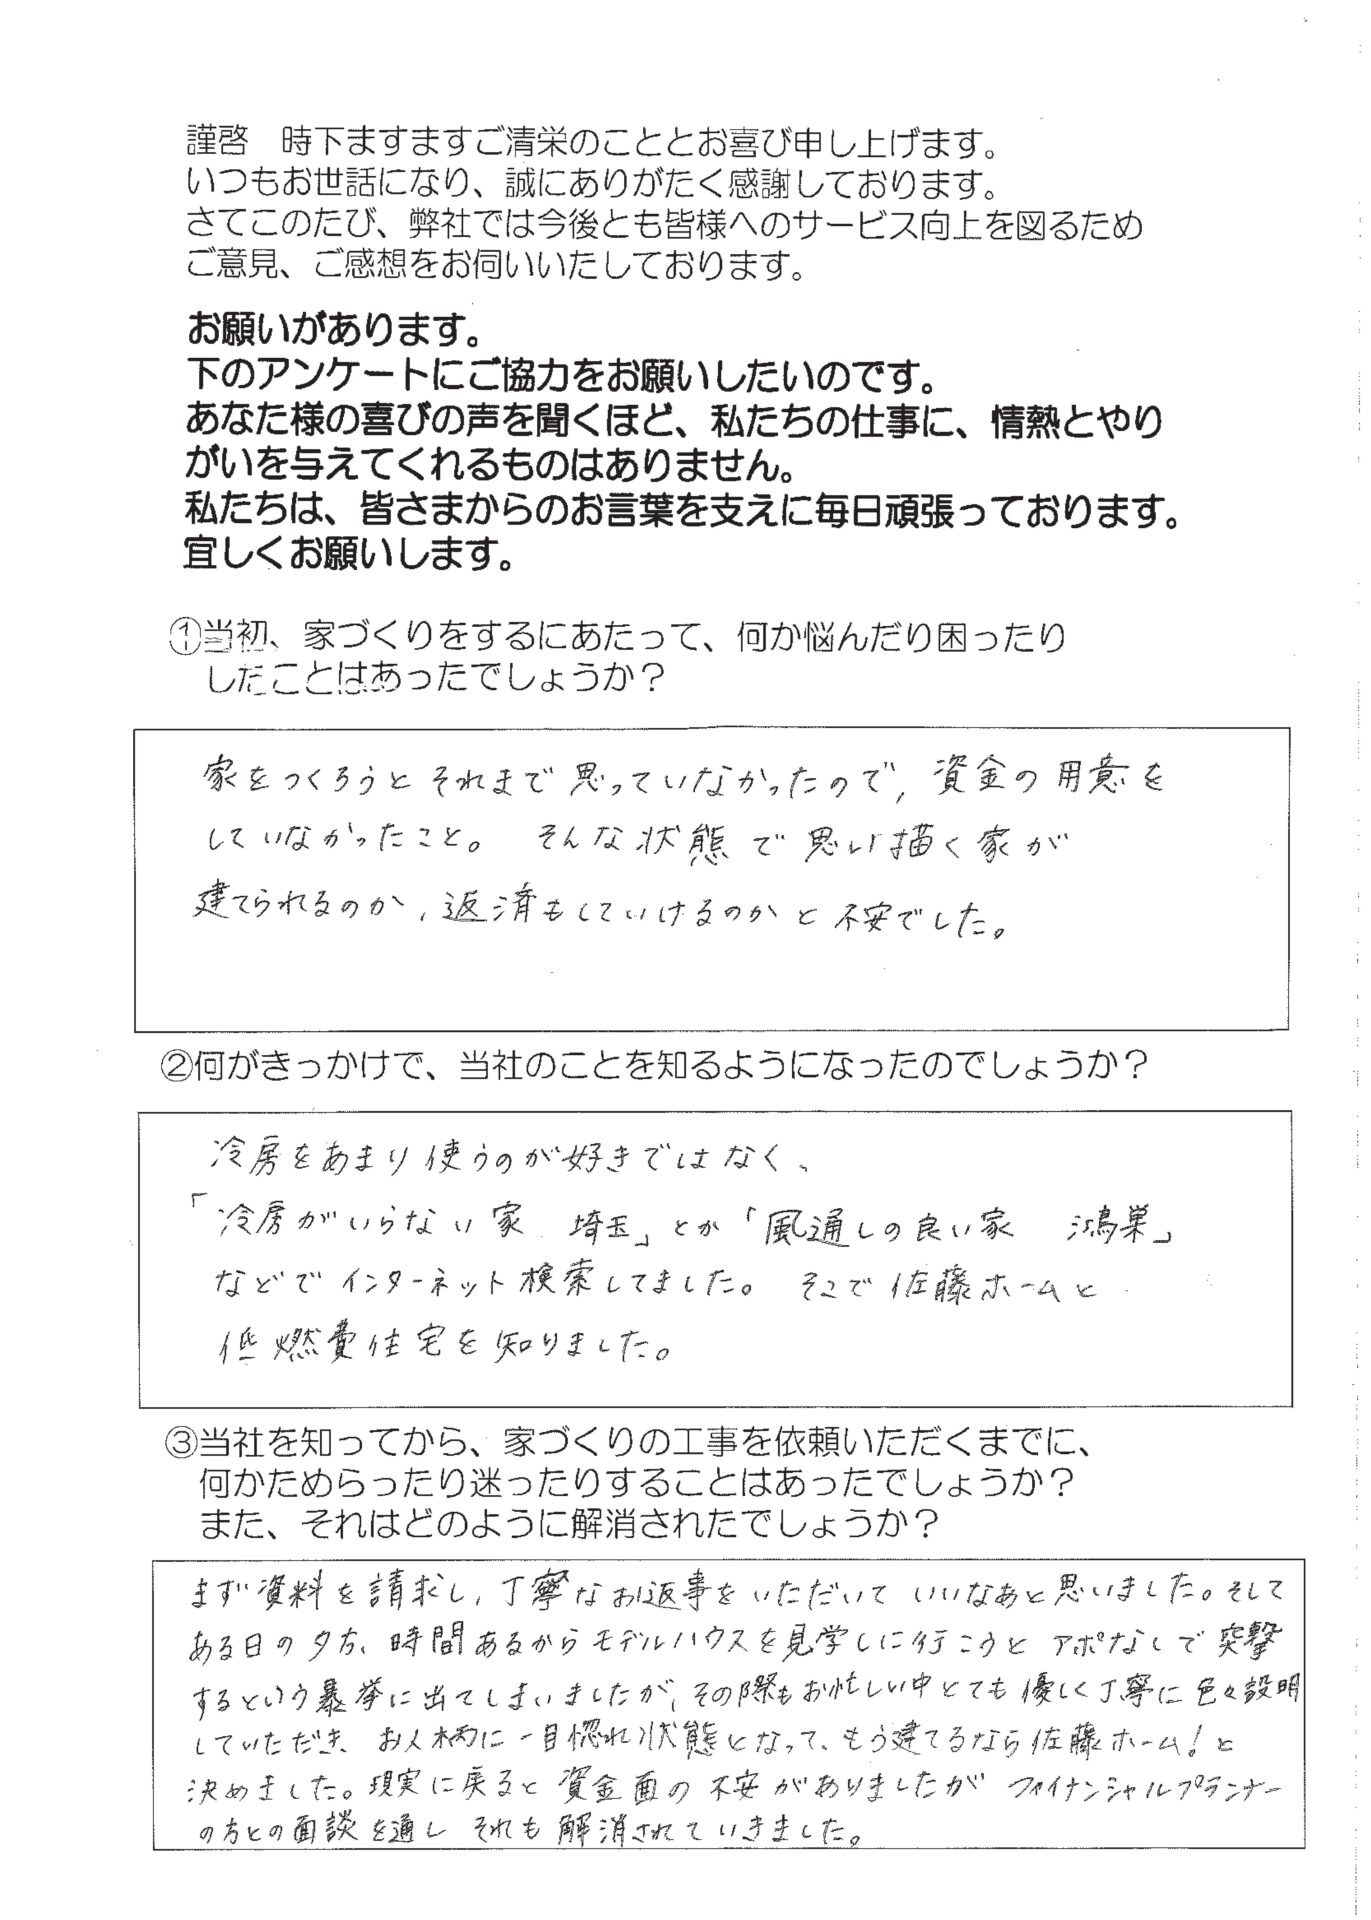 謹啓　時下ますますご清栄のこととお喜び申し上げます。
いつもお世話になり、誠にありがたく感謝しております。
さてこのたび、弊社では今後とも皆様へのサービス向上を図るため
ご意見、ご感想をお伺いいたしております。
お願いがあります。
下のアンケートにご協力をお願いしたいのです。
あなた様の喜びの声を聞くほど、私たちの仕事に、情熱とやり
がいを与えてくれるものはありません。
私たちは、皆さまからのお言葉を支えに毎日頑張っております。
宜しくお願いします。
①当初、家づくりをするにあたって、何か悩んだり困ったり
したことはあったでしょうか？
家をつくろうとそれまで思っていなかったので,資金の用意を
していなかったこと。そんな状態で思い描く家が
建てられるのか,返済もしていけるのかと不安でした。
②何がきっかけで、当社のことを知るようになったのでしょうか？
冷房をあまり使うのが好きではなく、
「冷房がいらない家　埼玉」とか「風通しの良い家　鴻巣」
などでインターネット検索してました。そこで佐藤ホームと
低燃費住宅を知りました。
③当社を知ってから、家づくりの工事を依頼いただくまでに、
何かためらったり迷ったりすることはあったでしょうか？
また、それはどのように解消されたでしょうか？
まず資料を請求し,丁寧なお返事をいただいていいなあと思いました。そして
ある日の夕方、時間あるからモデルハウスを見学しに行こうとアポなしで突撃
するという暴挙に出てしまいましたが,その際もお忙しい中とても優しく丁寧に色々説明
していただき、お人柄に一目惚れ状態となって、もう建てるなら佐藤ホーム!と
決めました。現実に戻ると資金面の不安がありましたがファイナンシャルプランナー
の方との面談を通しそれも解消されていきました。